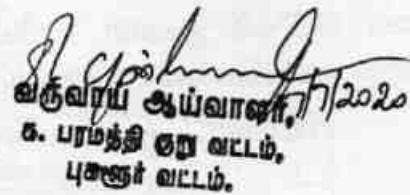 /7/2020
வருவாய் ஆய்வாளர்,
க. பரமத்தி குறு வட்டம்,
புகளூர் வட்டம்.